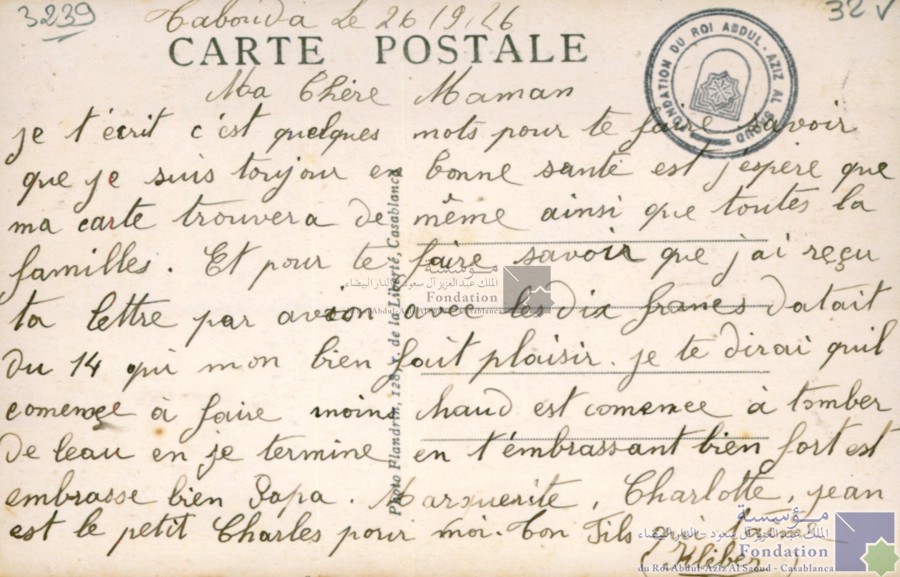 3239
Tabouda Le 26 | 9 | 26
32 v
CARTE POSTALE
FONDATION DU ROI ABDUL-AZIZ AL SAOUD
Ma Chère Maman
je t'écrit c'est quelques mots pour te faire savoir
que je suis toujour en bonne santé est j'espère que
ma carte trouvera de même ainsi que toutes la
familles. Et pour te faire savoir que j'ai reçu
ta lettre par avion avec les dix francs datait
du 14 qui mon bien fait plaisir. je te dirai quil
començe à faire moins chaud est comence à tomber
de leau en je termine en t'embrassant bien fort est
embrasse bien Papa. Marguerite, Charlotte, jean
est le petit Charles pour moi. Ton Fils qui
Kléber
Photo Flandrin, 128, r. de la Liberté, Casablanca
مؤسسة
الملك عبد العزيز آل سعود - الدار البيضاء
Fondation
du Roi Abdul-Aziz Al Saoud - Casablanca
مؤسسة
الملك عبد العزيز آل سعود - الدار البيضاء
Fondation
du Roi Abdul-Aziz Al Saoud - Casablanca